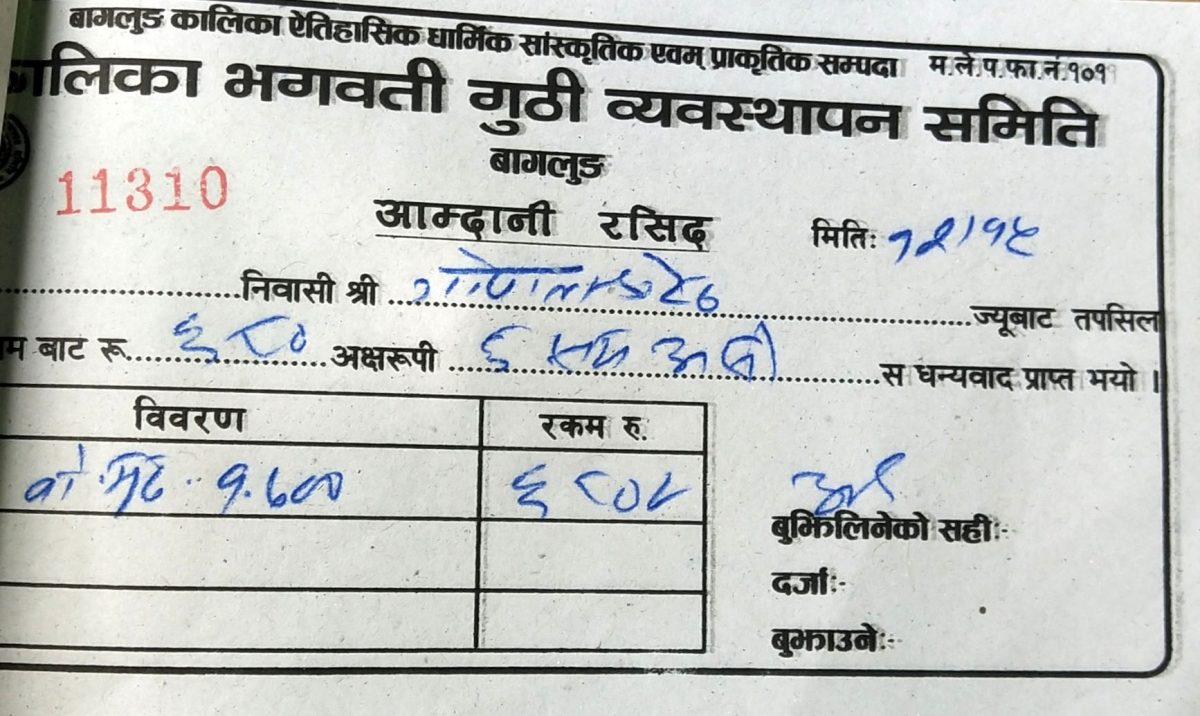 बागलुङ कालिका ऐतिहासिक धार्मिक सांस्कृतिक एवम् प्राकृतिक सम्पदा म.ले.प.फा.नं.१०१
कालिका भगवती गुठी व्यवस्थापन समिति
बागलुङ
11310
आम्दानी रसिद मिति: १२।१५
निवासी श्री ज्यूबाट तपसिल
बाट रू. ६८० अक्षरूपी ६ सय असी स धन्यवाद प्राप्त भयो ।
विवरण रकम रु.
६८०/
बुझिलिनेको सही:-
दर्जा:-
बुझाउने:-